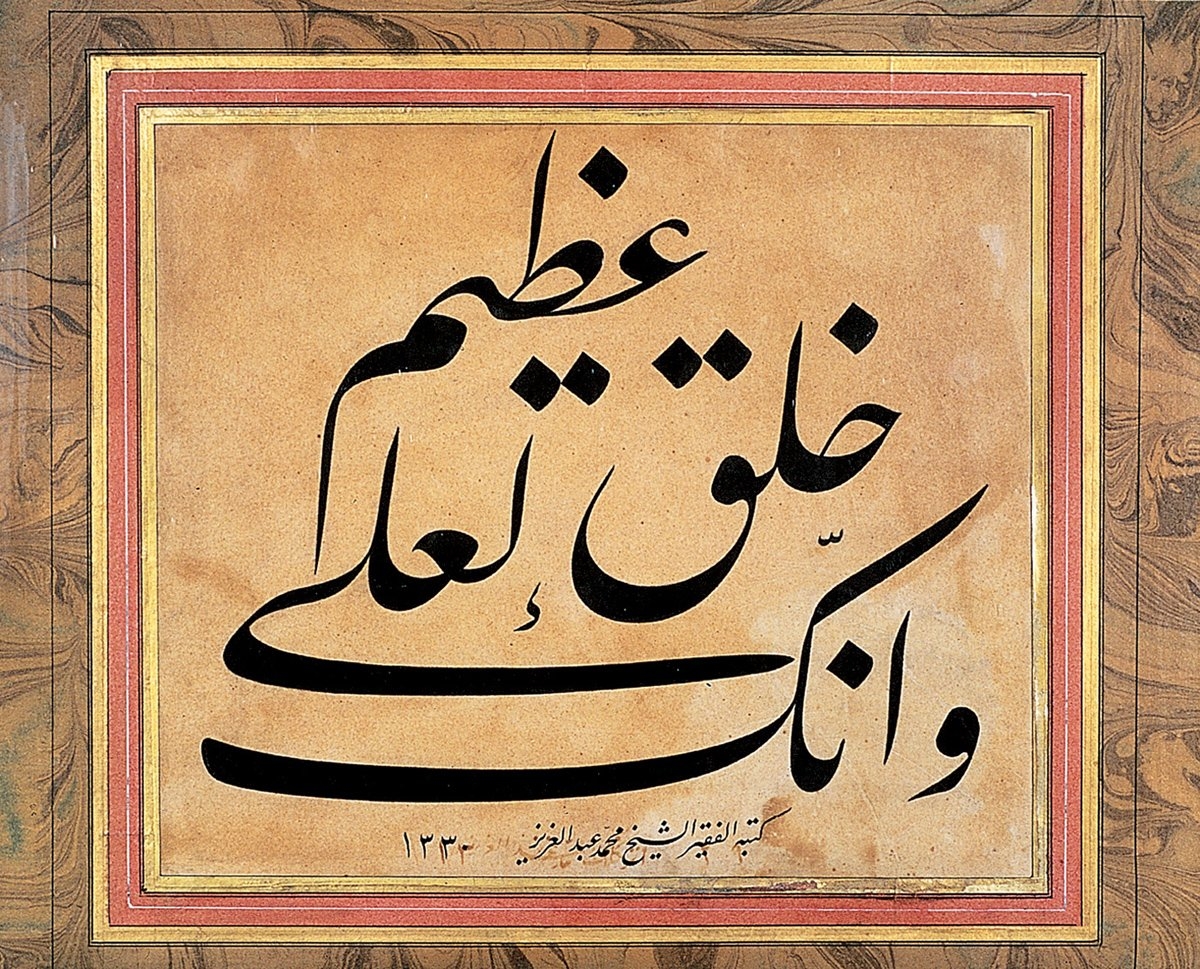 وانّك لعلى خلق عظيم
كتبه الفقير الشيخ محمد عبد العزيز ١٣٣٠